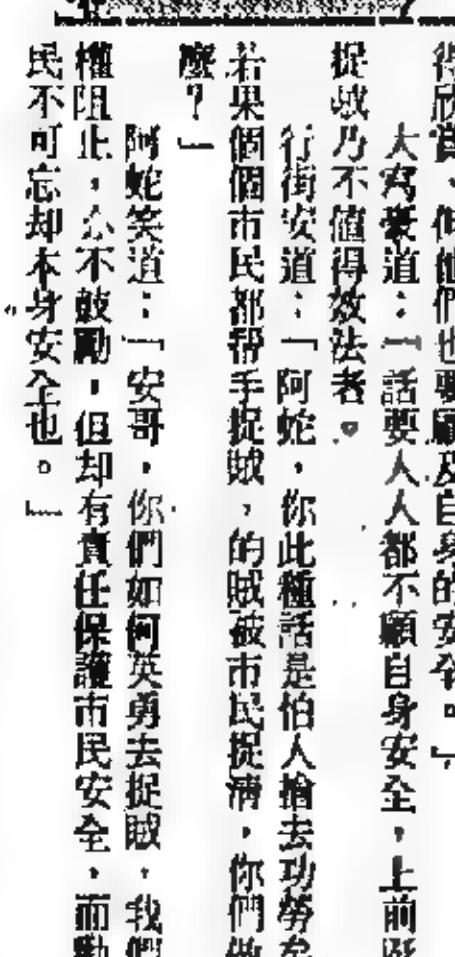 得欣賞、但他們也要顧及自身的安全。」
大寫豪道：「話要人人都不顧自身安全，上前
捉賊乃不值得效法者。
行街安道：「阿蛇，你此種話是怕人搶去功勞
若果個個市民都帮手捉賊，的賊被市民捉清，你們做
麼？」
阿蛇笑道：「安哥，你們如何英勇去捉賊，我們
權阻止，亦不鼓勵，但却有責任保護市民安全，而勸
民不可忘却本身安全也。」